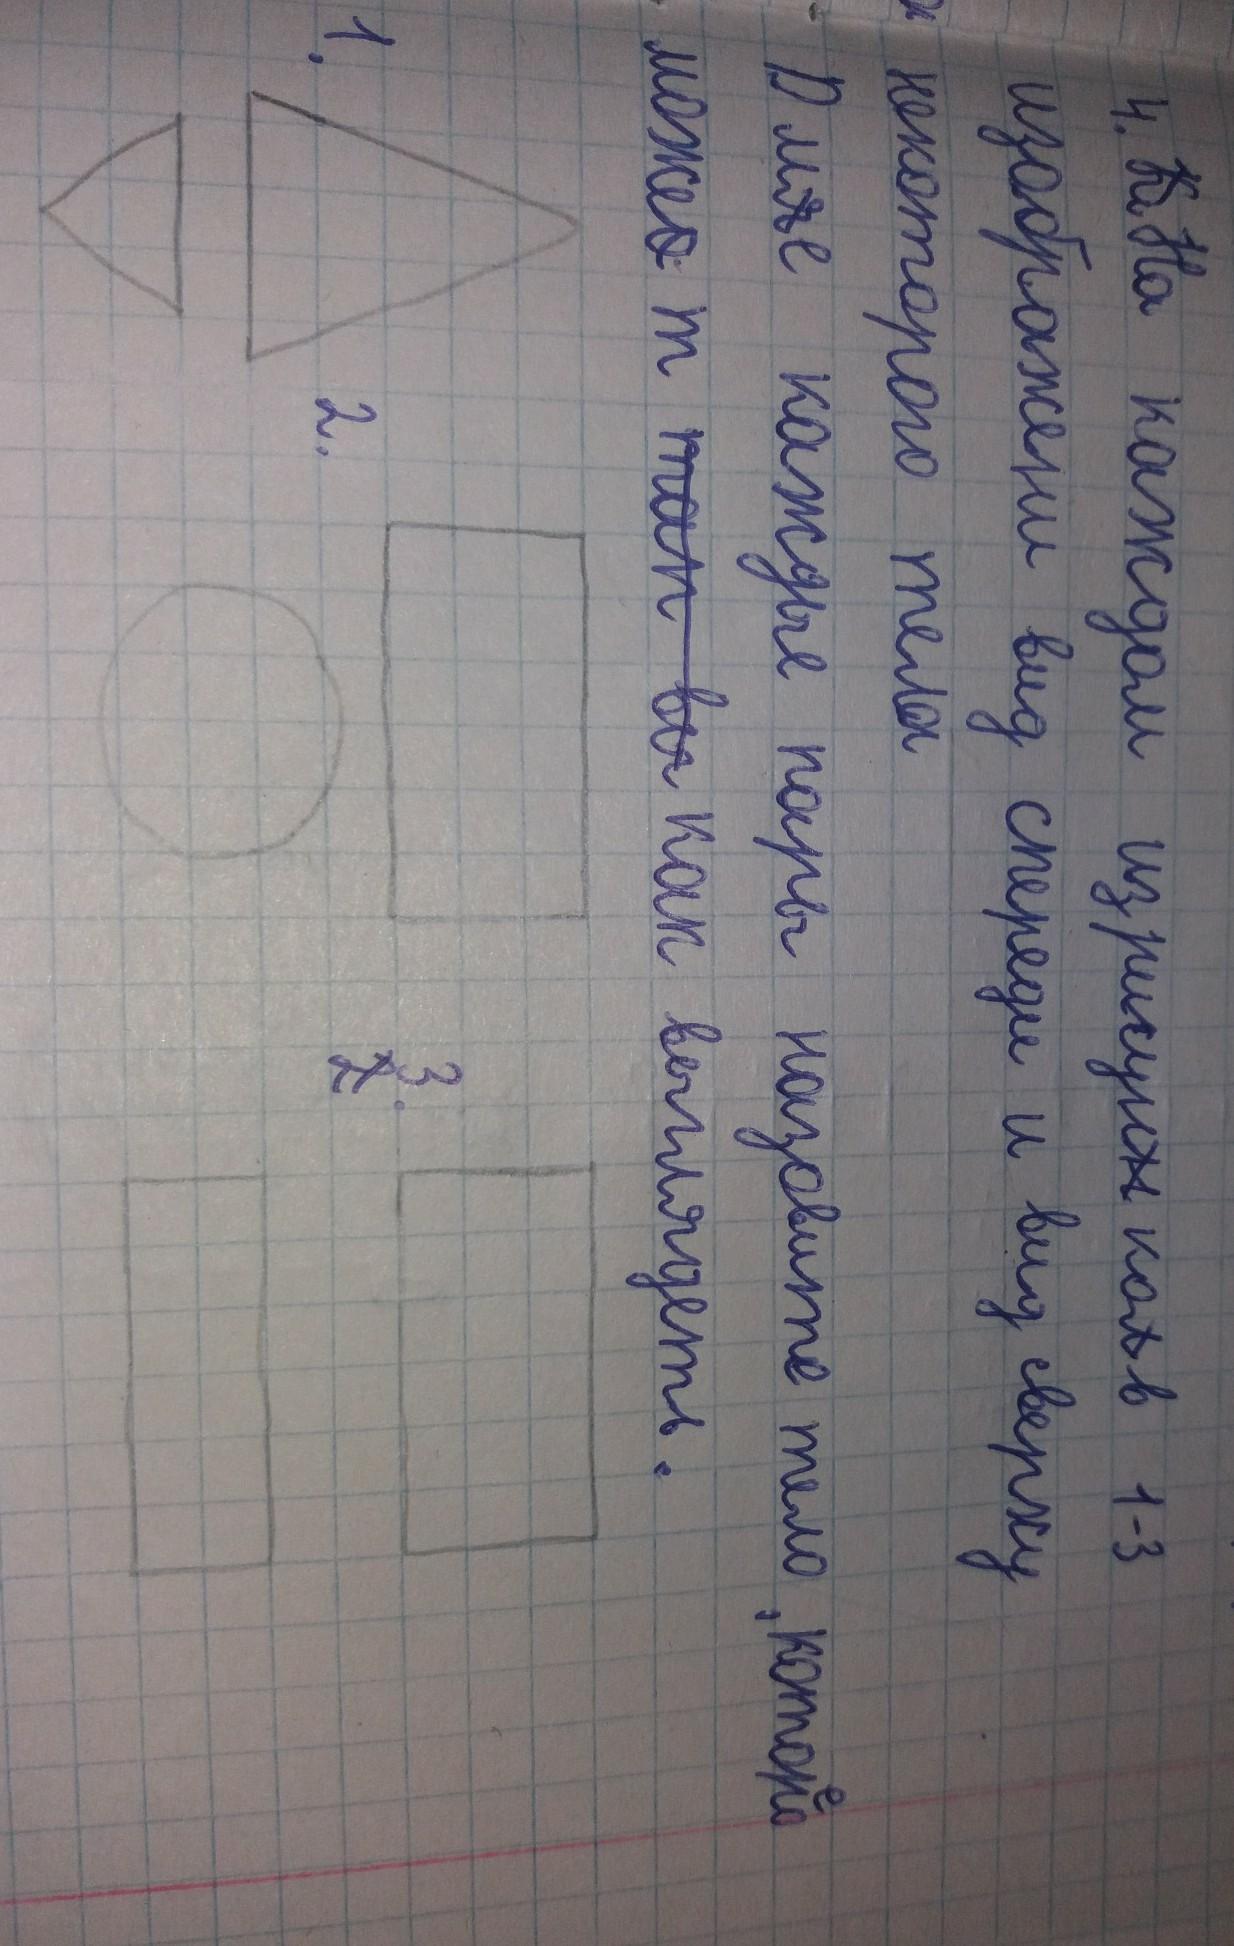 4. На каждом из рисунков 1-3
изображени вид спереди и вид сверху
некоторого тела
Для каждые пары назовите тело, которе
может как выглядеть.
1.
2.
3.